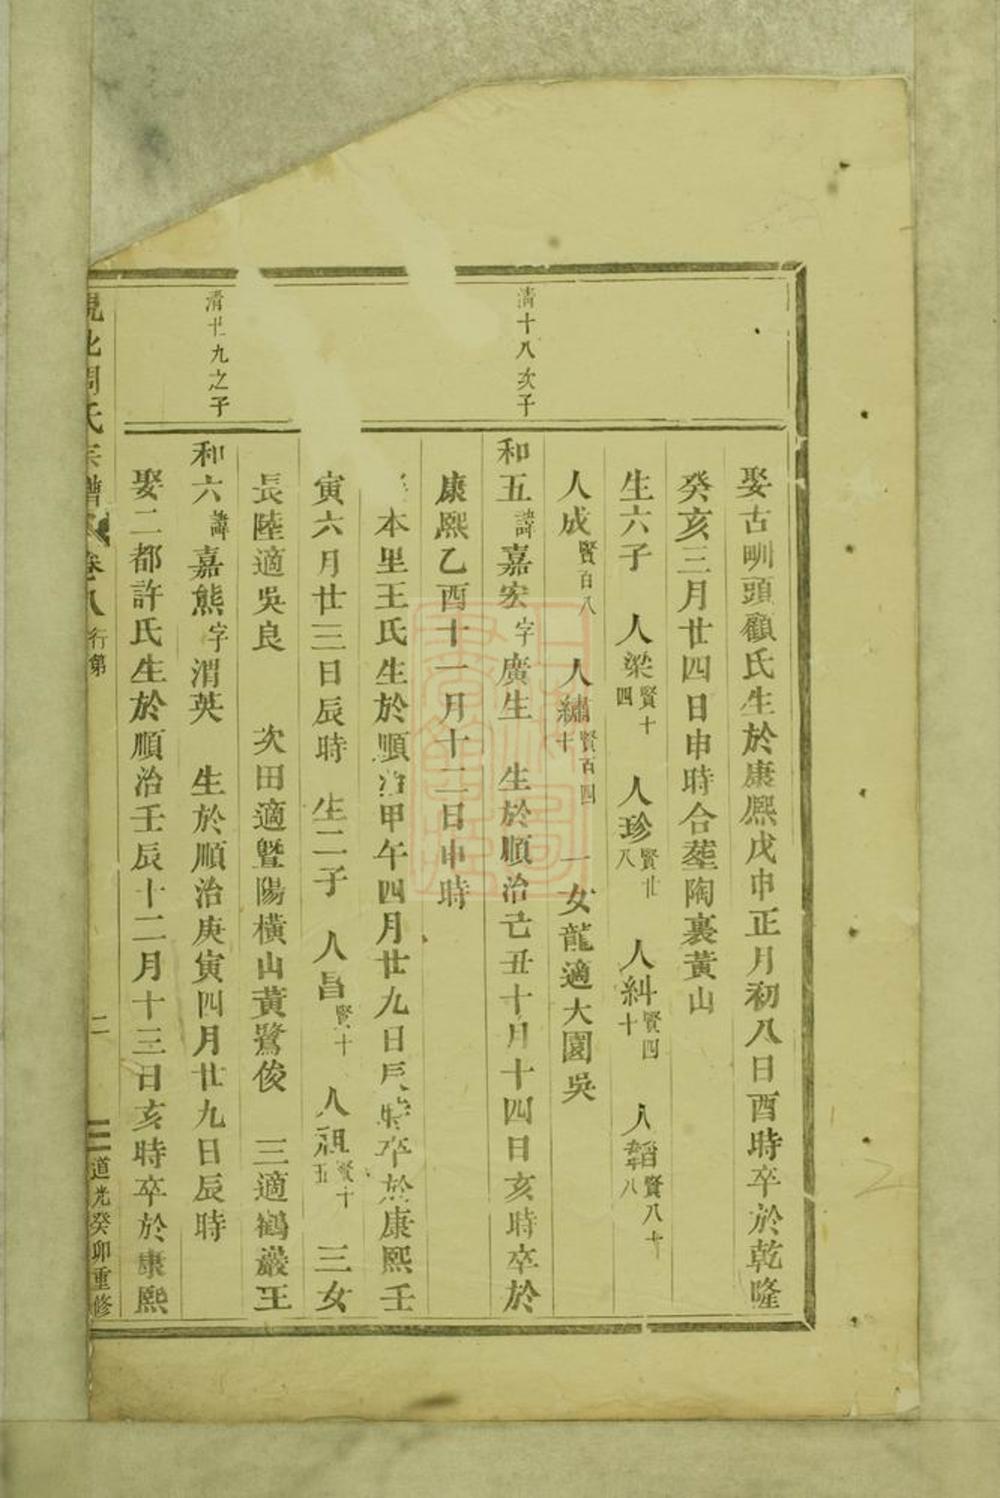 娶古㘭頭顧氏生於康熙戊申正月初八日酉時卒於乾隆
癸亥三月廿四日申時合塟陶裏黃山
生六子 人梁賢十四 人珍賢廿八 人糾賢四十 人韜賢八十八
人成賢百八 人繡賢百四十 一女龍適大園吳
清十八次子
和五諱嘉宏字廣生 生於順治己丑十月十四日亥時卒於
康熙乙酉十一月十二日申時
本里王氏生於順治甲午四月廿九日辰時卒於康熙壬
寅六月廿三日辰時 生二子 人昌賢十 人祖賢十五 三女
長陸適吳良 次田適暨陽橫山黃鷺俊 三適鶴巖王
清廿九之子
和六諱嘉熊字渭英 生於順治庚寅四月廿九日辰時
娶二都許氏生於順治壬辰十二月十三日亥時卒於康熙
北周氏宗譜 卷八 行第 二 道光癸卯重修